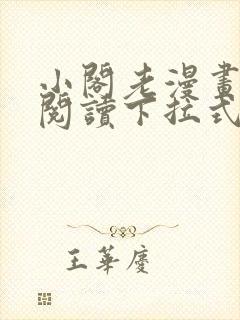 小閣老漫畫
閱讀下拉式
王華慶